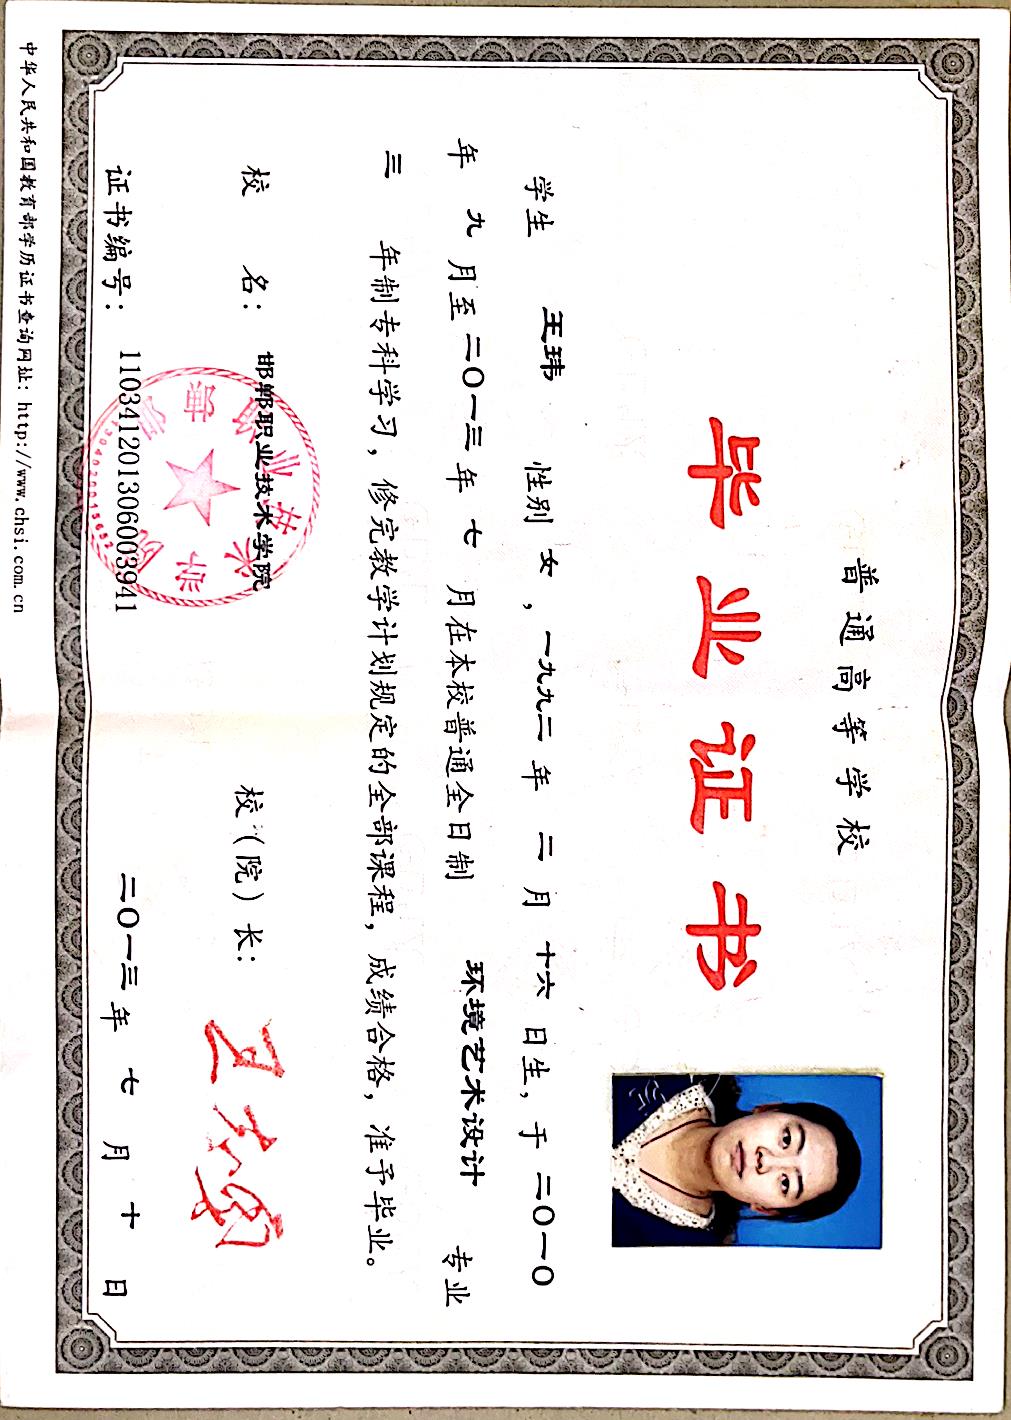 普通高等学校
毕业证书
学生 王玮 性别 女，一九九二 年 二 月 十六 日生，于 二〇一〇
年 九 月至 二〇一三 年 七 月在本校普通全日制 环境艺术设计 专业
三 年制专科学习，修完教学计划规定的全部课程，成绩合格，准予毕业。
校 名：邯郸职业技术学院 校（院）长：
证书编号：110341201306003941 二〇一三 年 七 月 十 日
中华人民共和国教育部学历证书查询网址：http://www.chsi.com.cn